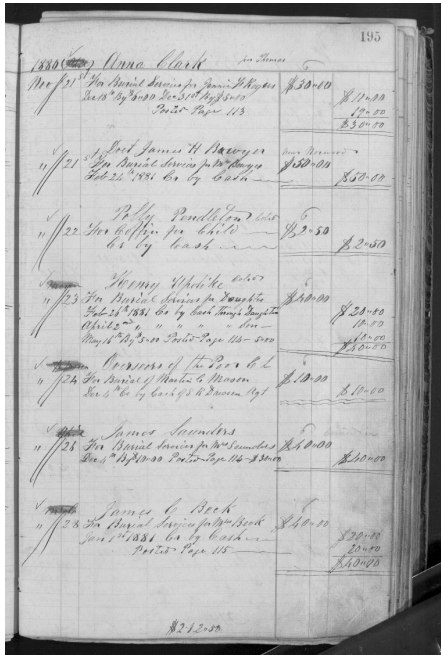 195
1880 Anna Clark
Nov 21st For Burial Services for Jennie H $30-00
Dec 18th By 4-00 Dec 31st By $8-00 $12-00
Posted Page 113
$30-00
James H Sawyer
" 21 For Burial Services for Mrs Sawyer $50-00
Feb 24th 1881 Cr by Cash $50-00
Polly Pendleton
" 22 For Coffin for Child $2-50
Cr by Cash $2-50
Henry Updike
" 23 For Burial Services for Daughter $40-00
Feb 26th 1881 Cr by Cash $20-00
April 2nd " " " " 10-00
May 16th By 5-00 Posted Page 114 - 5-00 10-00
$40-00
Overseers of the Poor C L
" 24 For Burial of Martin C Mason $10-00
Dec 4th Cr by Cash of S R Dawson Agt $10-00
James Saunders
" 26 For Burial Services for Mrs Saunders $40-00
Dec 4th By 10-00 Posted Page 114 - $30-00 $40-00
James G Beck
" 28 For Burial Services for Mrs Beck $40-00
Jan 1881 Cr by Cash $20-00
Posted Page 115 20-00
$40-00
$212-50